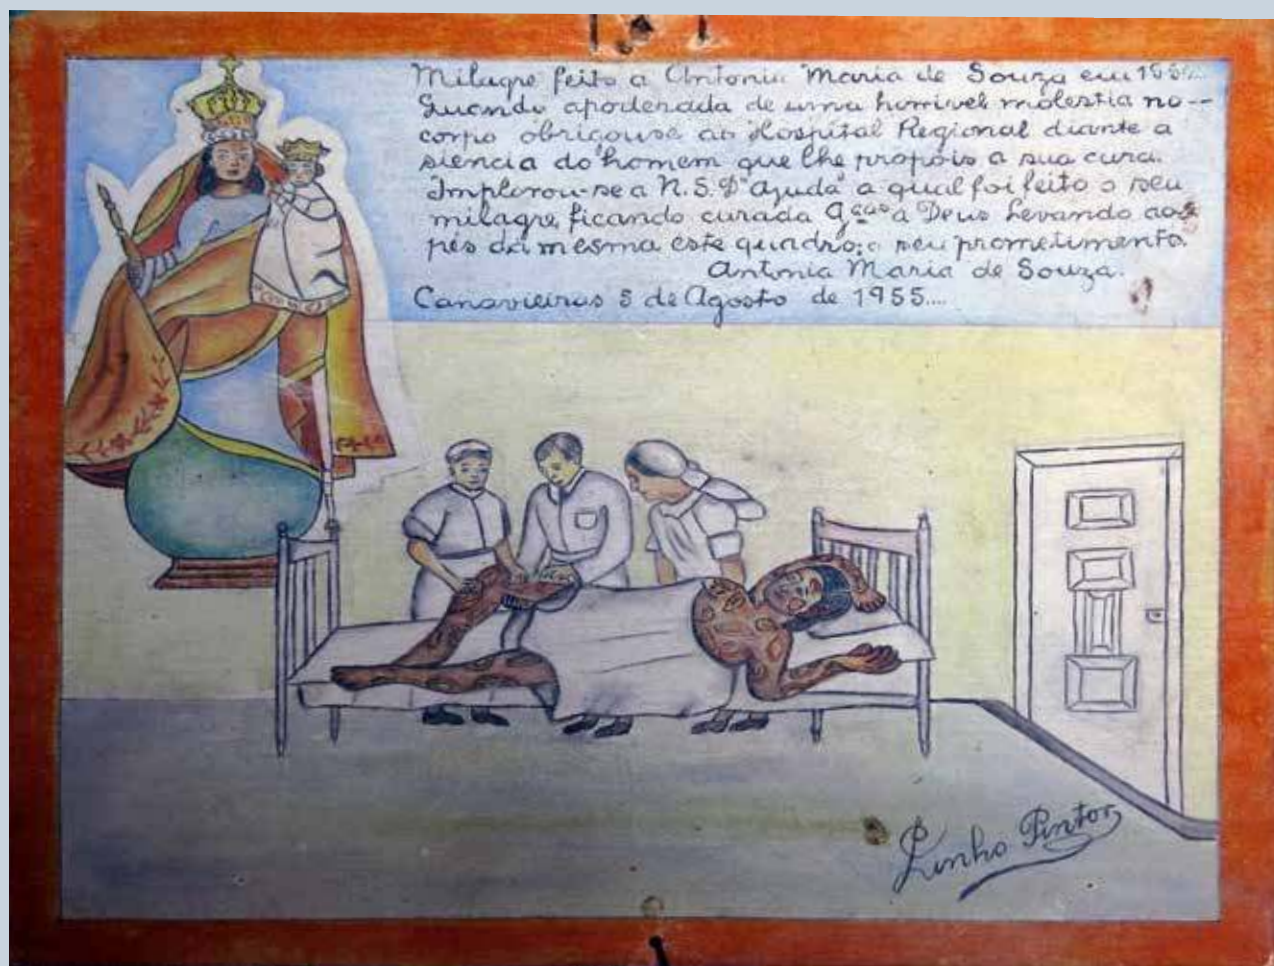 Milagre feito a Antonia Maria de Souza em
Quando apoderada de uma horrivel molestia no--
corpo obrigouse ao Hospital Regional diante a
siencia do homem que lhe propois a sua cura.
Implorou-se a N. S. D'ajuda a qual foi feito o seu
milagre ficando curada Gças a Deus Levando aos
pés da mesma este quadro; o seu prometimento
Antonia Maria de Souza.
Canavieiras 5 de Agosto de 1955....
Pintor